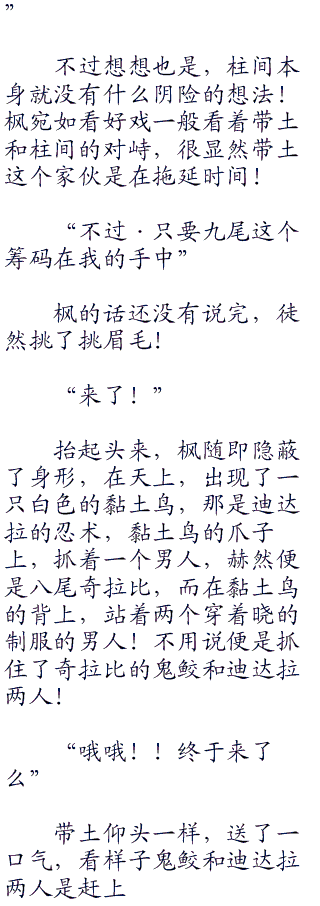 ”
不过想想也是，柱间本
身就没有什么阴险的想法！
枫宛如看好戏一般看着带土
和柱间的对峙，很显然带土
这个家伙是在拖延时间！
“不过·只要九尾这个
筹码在我的手中”
枫的话还没有说完，徒
然挑了挑眉毛！
“来了！”
抬起头来，枫随即隐蔽
了身形，在天上，出现了一
只白色的黏土鸟，那是迪达
拉的忍术，黏土鸟的爪子
上，抓着一个男人，赫然便
是八尾奇拉比，而在黏土鸟
的背上，站着两个穿着晓的
制服的男人！不用说便是抓
住了奇拉比的鬼鲛和迪达拉
两人！
“哦哦！！终于来了
么”
带土仰头一样，送了一
口气，看样子鬼鲛和迪达拉
两人是赶上